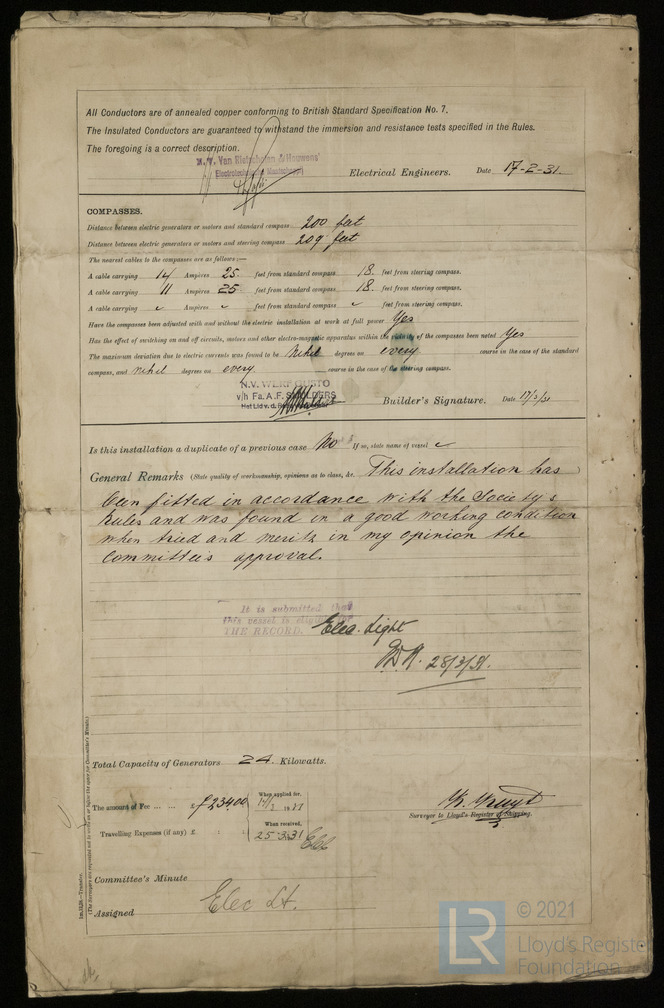 All Conductors are of annealed copper conforming to British Standard Specification No. 7.
The Insulated Conductors are guaranteed to withstand the immersion and resistance tests specified in the Rules.
The foregoing is a correct description.
Electrical Engineers. Date 17-2-31.
COMPASSES.
Distance between electric generators or motors and standard compass 200 feet
Distance between electric generators or motors and steering compass 209 feet
The nearest cables to the compasses are as follows:—
A cable carrying 14 Ampères 25 feet from standard compass 18. feet from steering compass.
A cable carrying 11 Ampères 25 feet from standard compass 18. feet from steering compass.
A cable carrying Ampères feet from standard compass feet from steering compass.
Have the compasses been adjusted with and without the electric installation at work at full power Yes
Has the effect of switching on and off circuits, motors and other electro-magnetic apparatus within the vicinity of the compasses been noted Yes
The maximum deviation due to electric currents was found to be Nihil degrees on every course in the case of the standard
compass, and nihil degrees on every course in the case of the steering compass.
N.V. WERF GUSTO
v/h Fa. A.F. SMULDERS
Builder's Signature. Date 17/3/31
Is this installation a duplicate of a previous case No If so, state name of vessel
General Remarks (State quality of workmanship, opinions as to class, &c. This installation has
been fitted in accordance with the Society's
Rules and was found in a good working condition
when tried and merits in my opinion the
Committee's approval.
It is submitted that
this vessel is eligible for
THE RECORD. Elec. Light
28/3/31.
Total Capacity of Generators 24 Kilowatts.
The amount of Fee ... ... £ f234.00 When applied for,
When received,
Travelling Expenses (if any) £ 25.3.31
Surveyor to Lloyd's Register of Shipping.
Committee's Minute
Assigned Elec Lt.
LR © 2021
Lloyd's Register
Foundation